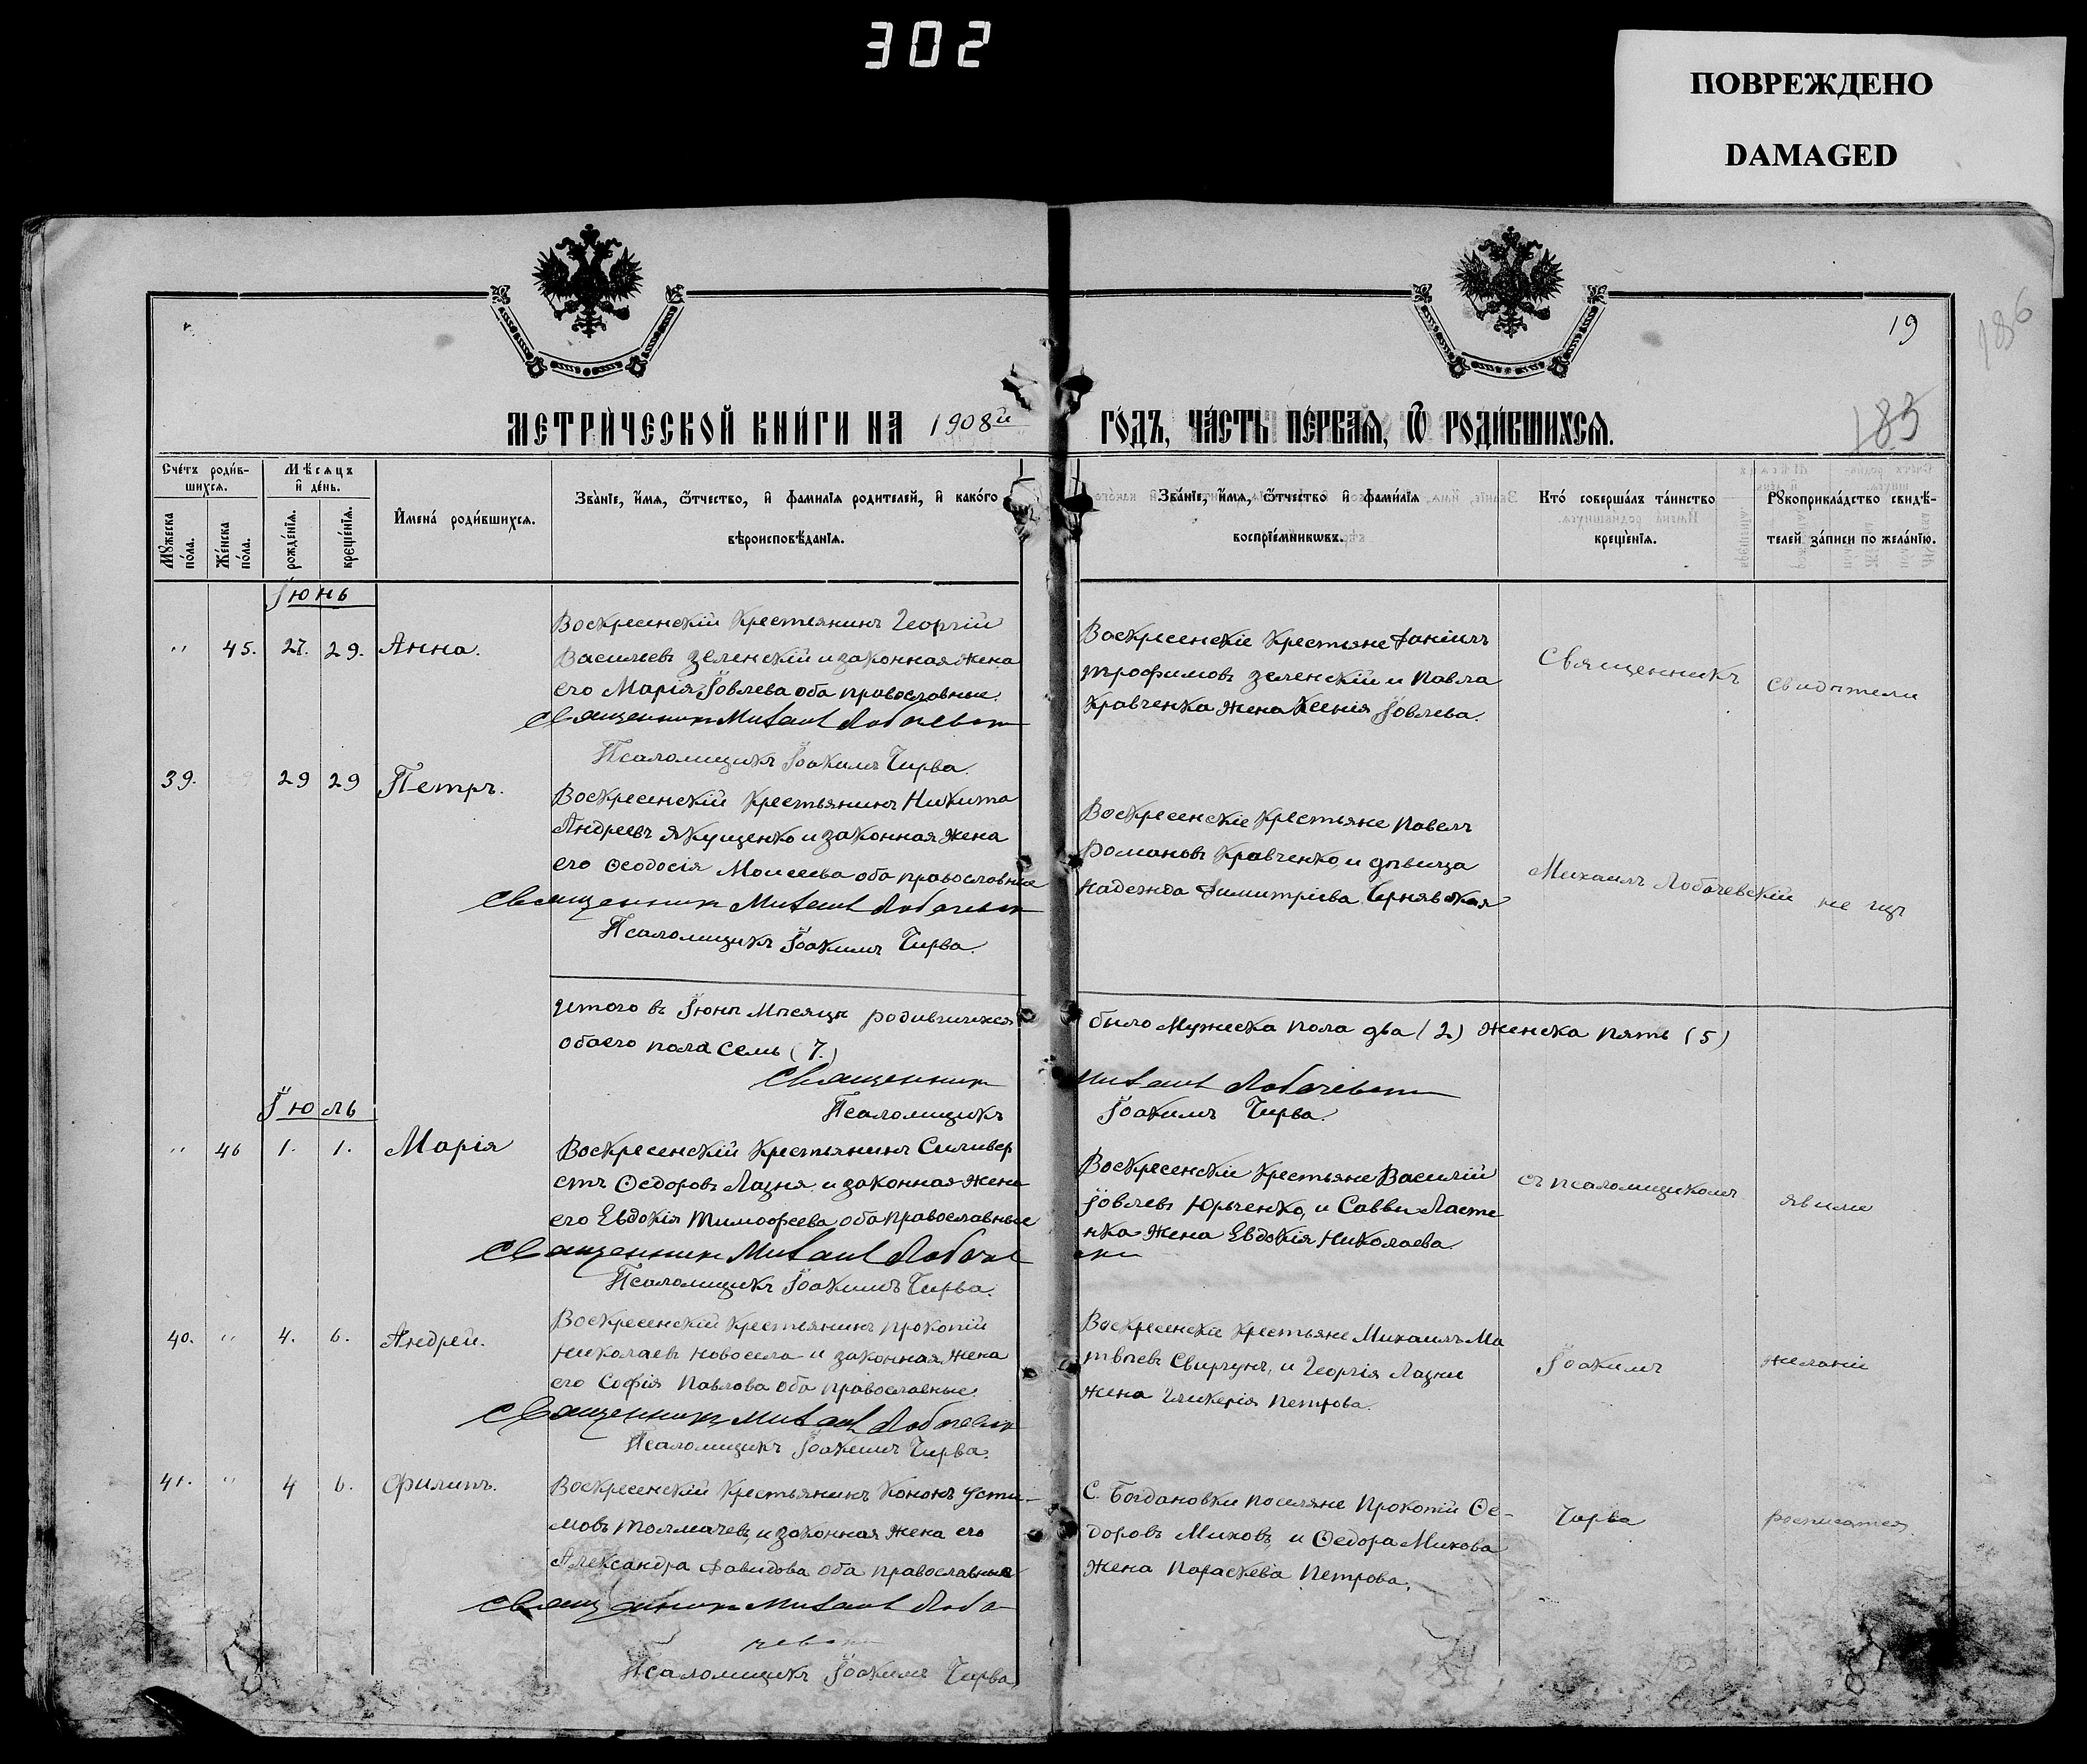 302
ПОВРЕЖДЕНО
DAMAGED
19
186
183
МЕТРИ́ЧЕСКОЙ КНИ́ГИ НА 1908й ГО́ДЪ, ЧА́СТЬ ПЕ́РВАѦ, Ѡ РОДИ́ВШИХСѦ.
Сче́тъ роди́в-
шихсѧ.
Мѣ́сѧцъ
и҆ де́нь.
Мꙋ́жеска по́ла.
Же́нска по́ла.
рожде́нїѧ.
креще́нїѧ.
И҆мена̀ роди́вшихсѧ.
Зва́нїе, и҆́мѧ, ѻ҆́тчество, и҆ фами́лїѧ роди́телей, и҆ како́го
вѣроисповѣ́данїѧ.
Зва́нїе, и҆́мѧ, ѻ҆́тчество и҆ фами́лїѧ
воспрїе́мникѡвъ.
Кто̀ соверша́лъ та́инство
креще́нїѧ.
Рꙋкоприкла́дство свидѣ́-
телей за́писи по жела́нїю.
Іюнь
" 45. 27. 29. Анна.
Воскресенскій Крестьянинъ Георгій
Васильевъ Зеленскій и законная жена
его Марія Іовлева оба православные.
Священникъ Михаилъ Лобачевскій
Псаломщикъ Іоакимъ Чирва.
Воскресенскіе Крестьяне Даніилъ
Трофимовъ Зеленскій и Павла
Кравченка жена Ксенія Іовлева.
Священникъ
Свидѣтели
39. 29 29 Петръ.
Воскресенскій Крестьянинъ Никита
Андреевъ Якущенко и законная жена
его Ѳеодосія Моисеева оба православные
Священникъ Михаилъ Лобачевскій
Псаломщикъ Іоакимъ Чирва.
Воскресенскіе Крестьяне Павелъ
Романовъ Кравченко, и дѣвица
Надежда Димитріева Чернявская
Михаилъ Лобачевскій
не
Итого въ Іюнѣ Мѣсяцѣ родившихся
обоего пола семь (7.)
было Мужеска пола два (2) Женска пять (5)
Священникъ Михаилъ Лобачевскій
Псаломщикъ Іоакимъ Чирва.
Іюль
" 46 1. 1. Марія
Воскресенскій Крестьянинъ Сильвер
стъ Ѳедоровъ Лазня и законная жена
его Евдокія Тимоѳеева оба православные
Священникъ Михаилъ Лобачевскій
Псаломщикъ Іоакимъ Чирва.
Воскресенскіе Крестьяне Василій
Іовлевъ Юрченко, и Саввы Ласте
нка жена Евдокія Николаева.
съ псаломщикомъ
явили
40. " 4. 6. Андрей.
Воскресенскій Крестьянинъ Прокопій
Николаевъ Новосела и законная жена
его Софія Павлова оба православные.
Священникъ Михаилъ Лобачевскій
Псаломщикъ Іоакимъ Чирва.
Воскресенскіе Крестьяне Михаилъ Ма
твѣевъ Свиргунъ, и Георгія Лазни
жена Гликерія Петрова.
Іоакимъ
желаніе
41. " 4 6. Филиппъ.
Воскресенскій Крестьянинъ Кононъ Усти-
мовъ Толмачевъ, и законная жена его
Александра Давидова оба православные
Священникъ Михаилъ Лоба
чевскій
Псаломщикъ Іоакимъ Чирва.
С. Богдановки поселяне Прокопій Ѳе-
доровъ Миховъ, и Ѳедора Михова
жена Параскева Петрова.
Чирва
росписатся.